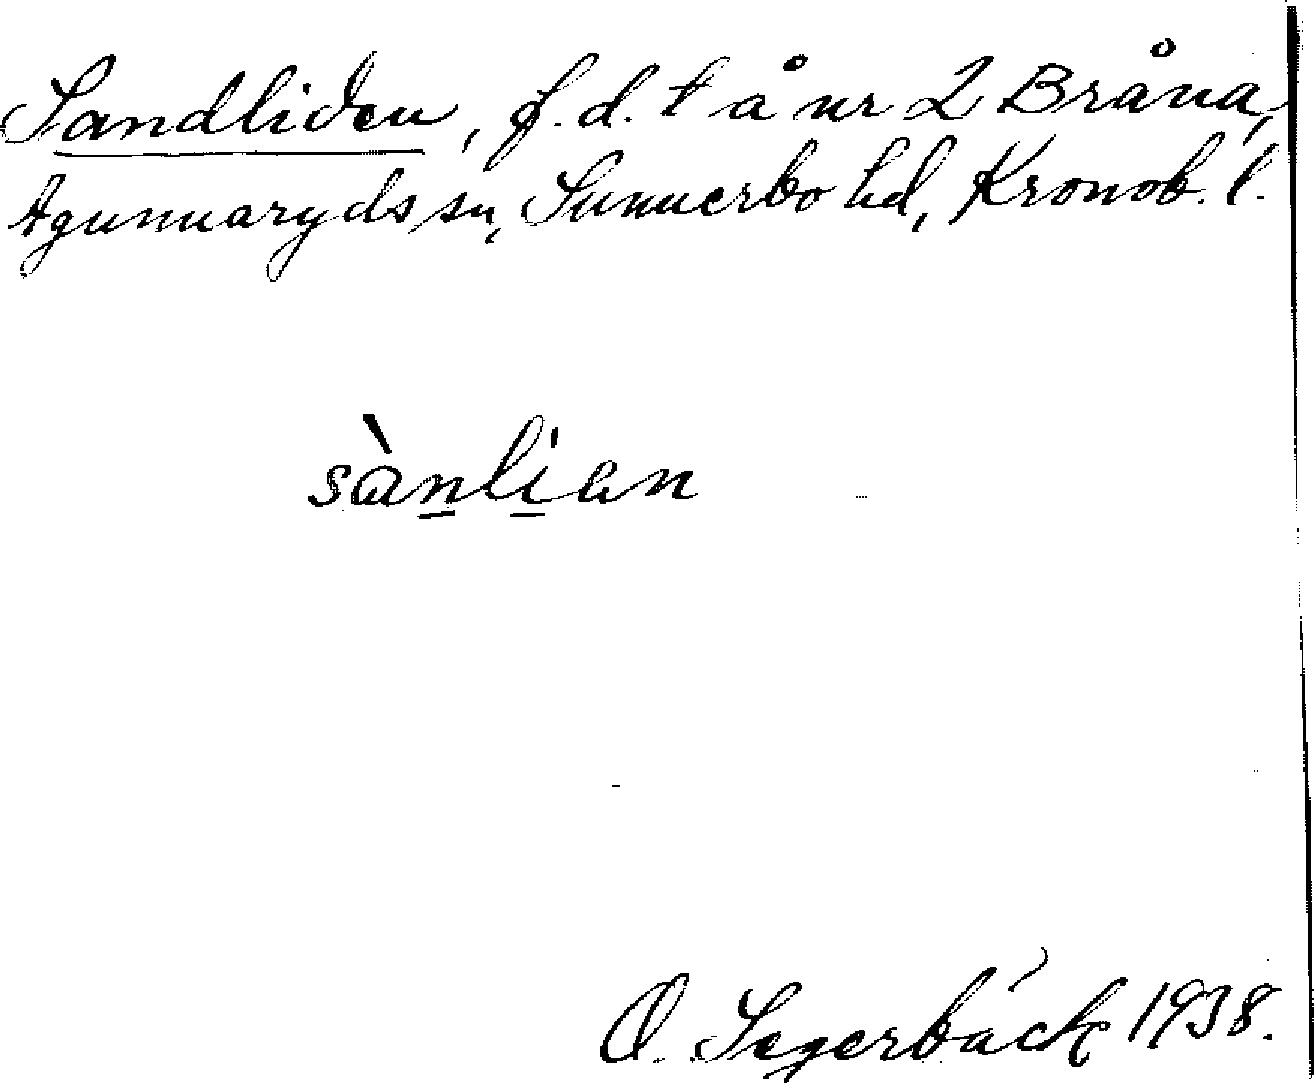 Sandliden, f.d. t å nr 2 Bråna,
Agunnaryds sn, Sunnerbo hd, Kronob. l.
sànlien
O. Segerbäck 1938.